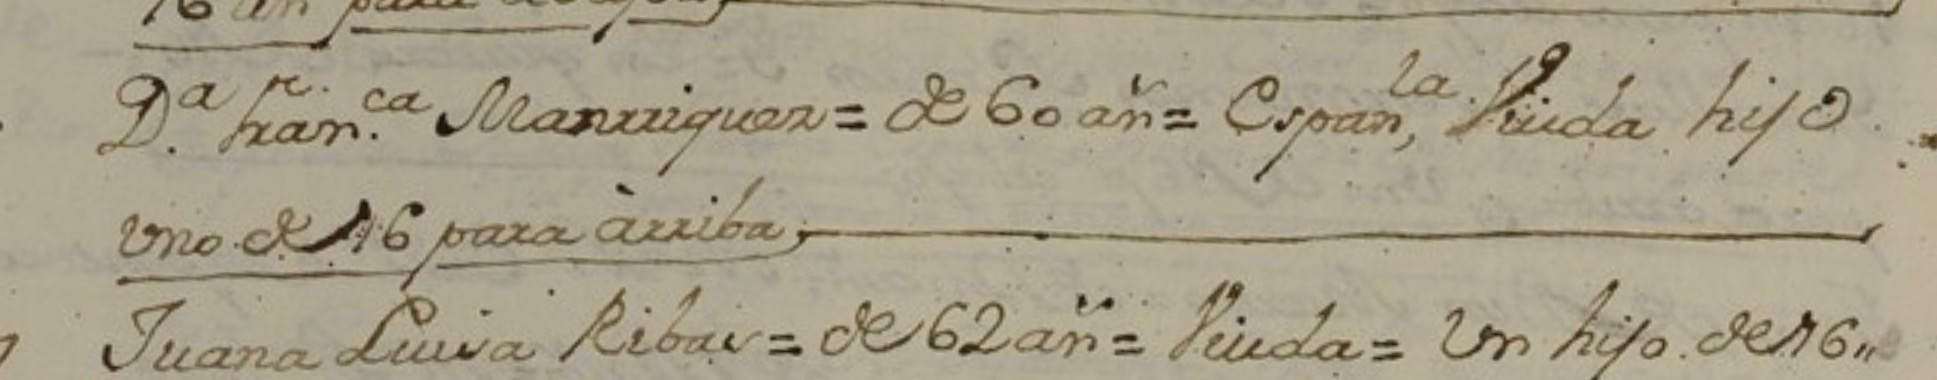 16 añ para arriba,
D.ª Fran.ca Manrriquez = de 60 añ = Españ,la Viuda hijo
vno de 16 para àrriba,
Juana Luisa Ribas = de 62 añ = Viuda = Vn hijo de 16,,